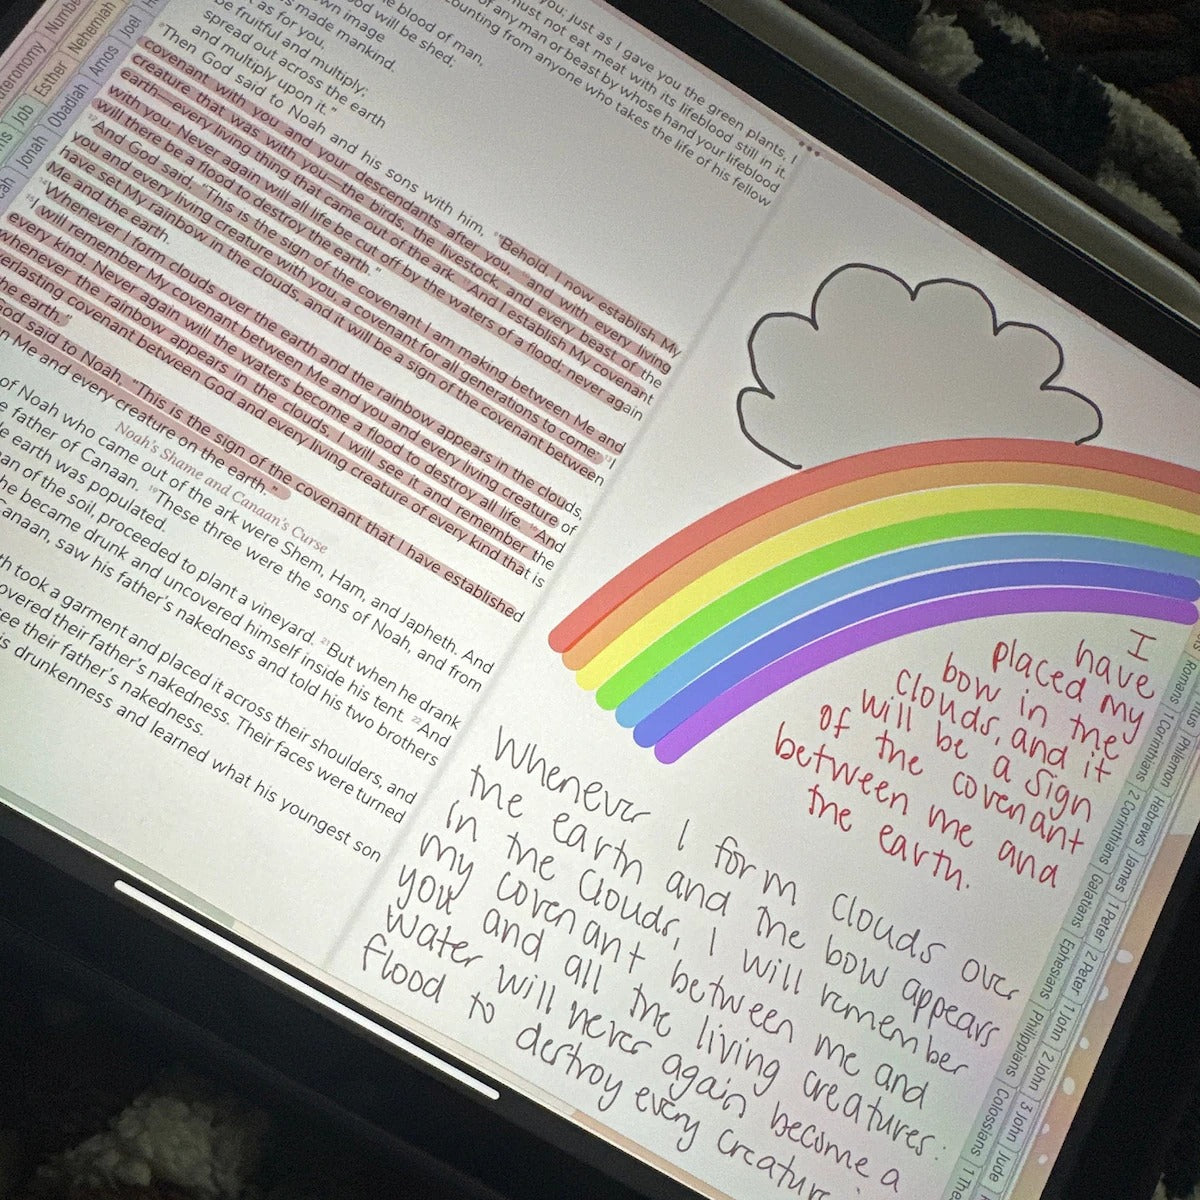 you, just as I gave you the green plants, I
must not eat meat with its lifeblood still in it.
of any man or beast by whose hand your lifeblood
counting from anyone who takes the life of his fellow
he blood of man,
od will be shed;
wn image
s made mankind.
t as for you,
be fruitful and multiply;
spread out across the earth
and multiply upon it."
Then God said to Noah and his sons with him, "Behold, I now establish My
covenant with you and your descendants after you, and with every living
creature that was with you—the birds, the livestock, and every beast of the
earth—every living thing that came out of the ark. And I establish My covenant
with you: Never again will all life be cut off by the waters of a flood; never again
will there be a flood to destroy the earth."
And God said, "This is the sign of the covenant I am making between Me and
you and every living creature with you, a covenant for all generations to come: I
have set My rainbow in the clouds, and it will be a sign of the covenant between
Me and the earth.
Whenever I form clouds over the earth and the rainbow appears in the clouds,
I will remember My covenant between Me and you and every living creature of
every kind. Never again will the waters become a flood to destroy all life. And
whenever the rainbow appears in the clouds, I will see it and remember the
erlasting covenant between God and every living creature of every kind that is
he earth."
God said to Noah, "This is the sign of the covenant that I have established
n Me and every creature on the earth."
Noah's Shame and Canaan's Curse
of Noah who came out of the ark were Shem, Ham, and Japheth. And
e father of Canaan. These three were the sons of Noah, and from
e earth was populated.
an of the soil, proceeded to plant a vineyard. But when he drank
he became drunk and uncovered himself inside his tent. And
Canaan, saw his father's nakedness and told his two brothers
th took a garment and placed it across their shoulders, and
overed their father's nakedness. Their faces were turned
ee their father's nakedness.
s drunkenness and learned what his youngest son
I
have
placed my
bow in the
clouds, and it
will be a sign
of the covenant
between me and
the earth.
Whenever I form clouds over
the earth and the bow appears
in the clouds, I will remember
my covenant between me and
you and all the living creatures:
water will never again become a
flood to destroy every creature
Numbe
teronomy
Esther Nehemiah
Job
Joel
Amos
Obadiah
Jonah
Romans 1 Corinthians 2 Corinthians Galatians Ephesians Philippians Colossians 1 The
Philemon Hebrews James 1 Peter 2 Peter 1 John 2 John 3 John Jude